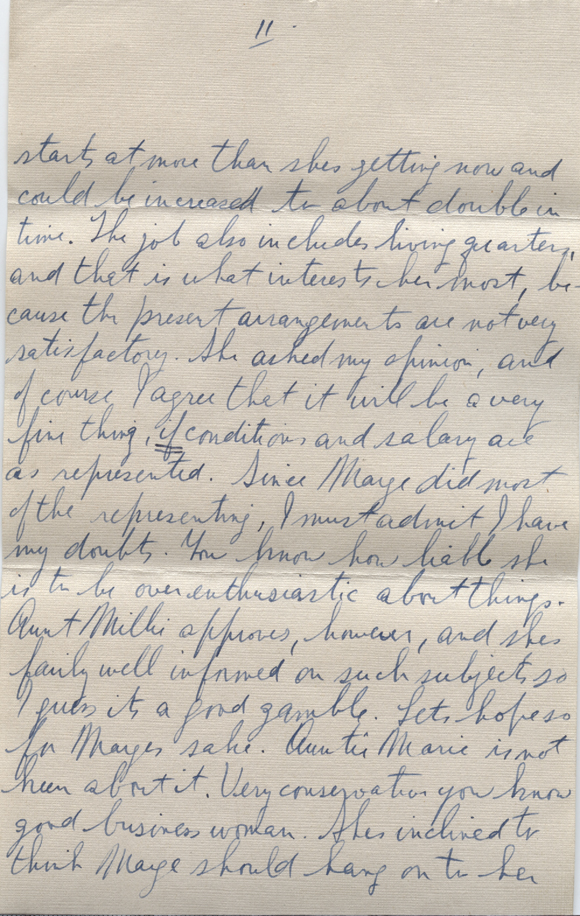 11
starts at more than shes getting now and
could be increased to about double in
time. The job also includes living quarters,
and that is what interests her most, be-
cause the present arrangements are not very
satisfactory. She asked my opinion, and
of course I agree that it will be a very
fine thing, if conditions and salary are
as represented. Since Marge did most
of the representing, I must admit I have
my doubts. You know how liable she
is to be over enthusiastic about things.
Aunt Millie approves, however, and shes
fairly well informed on such subjects so
I guess its a good gamble. Lets hope so
for Marges sake. Auntie Marie is not
keen about it. Very conservative you know
good business woman. Shes inclined to
think Marge should hang on to her